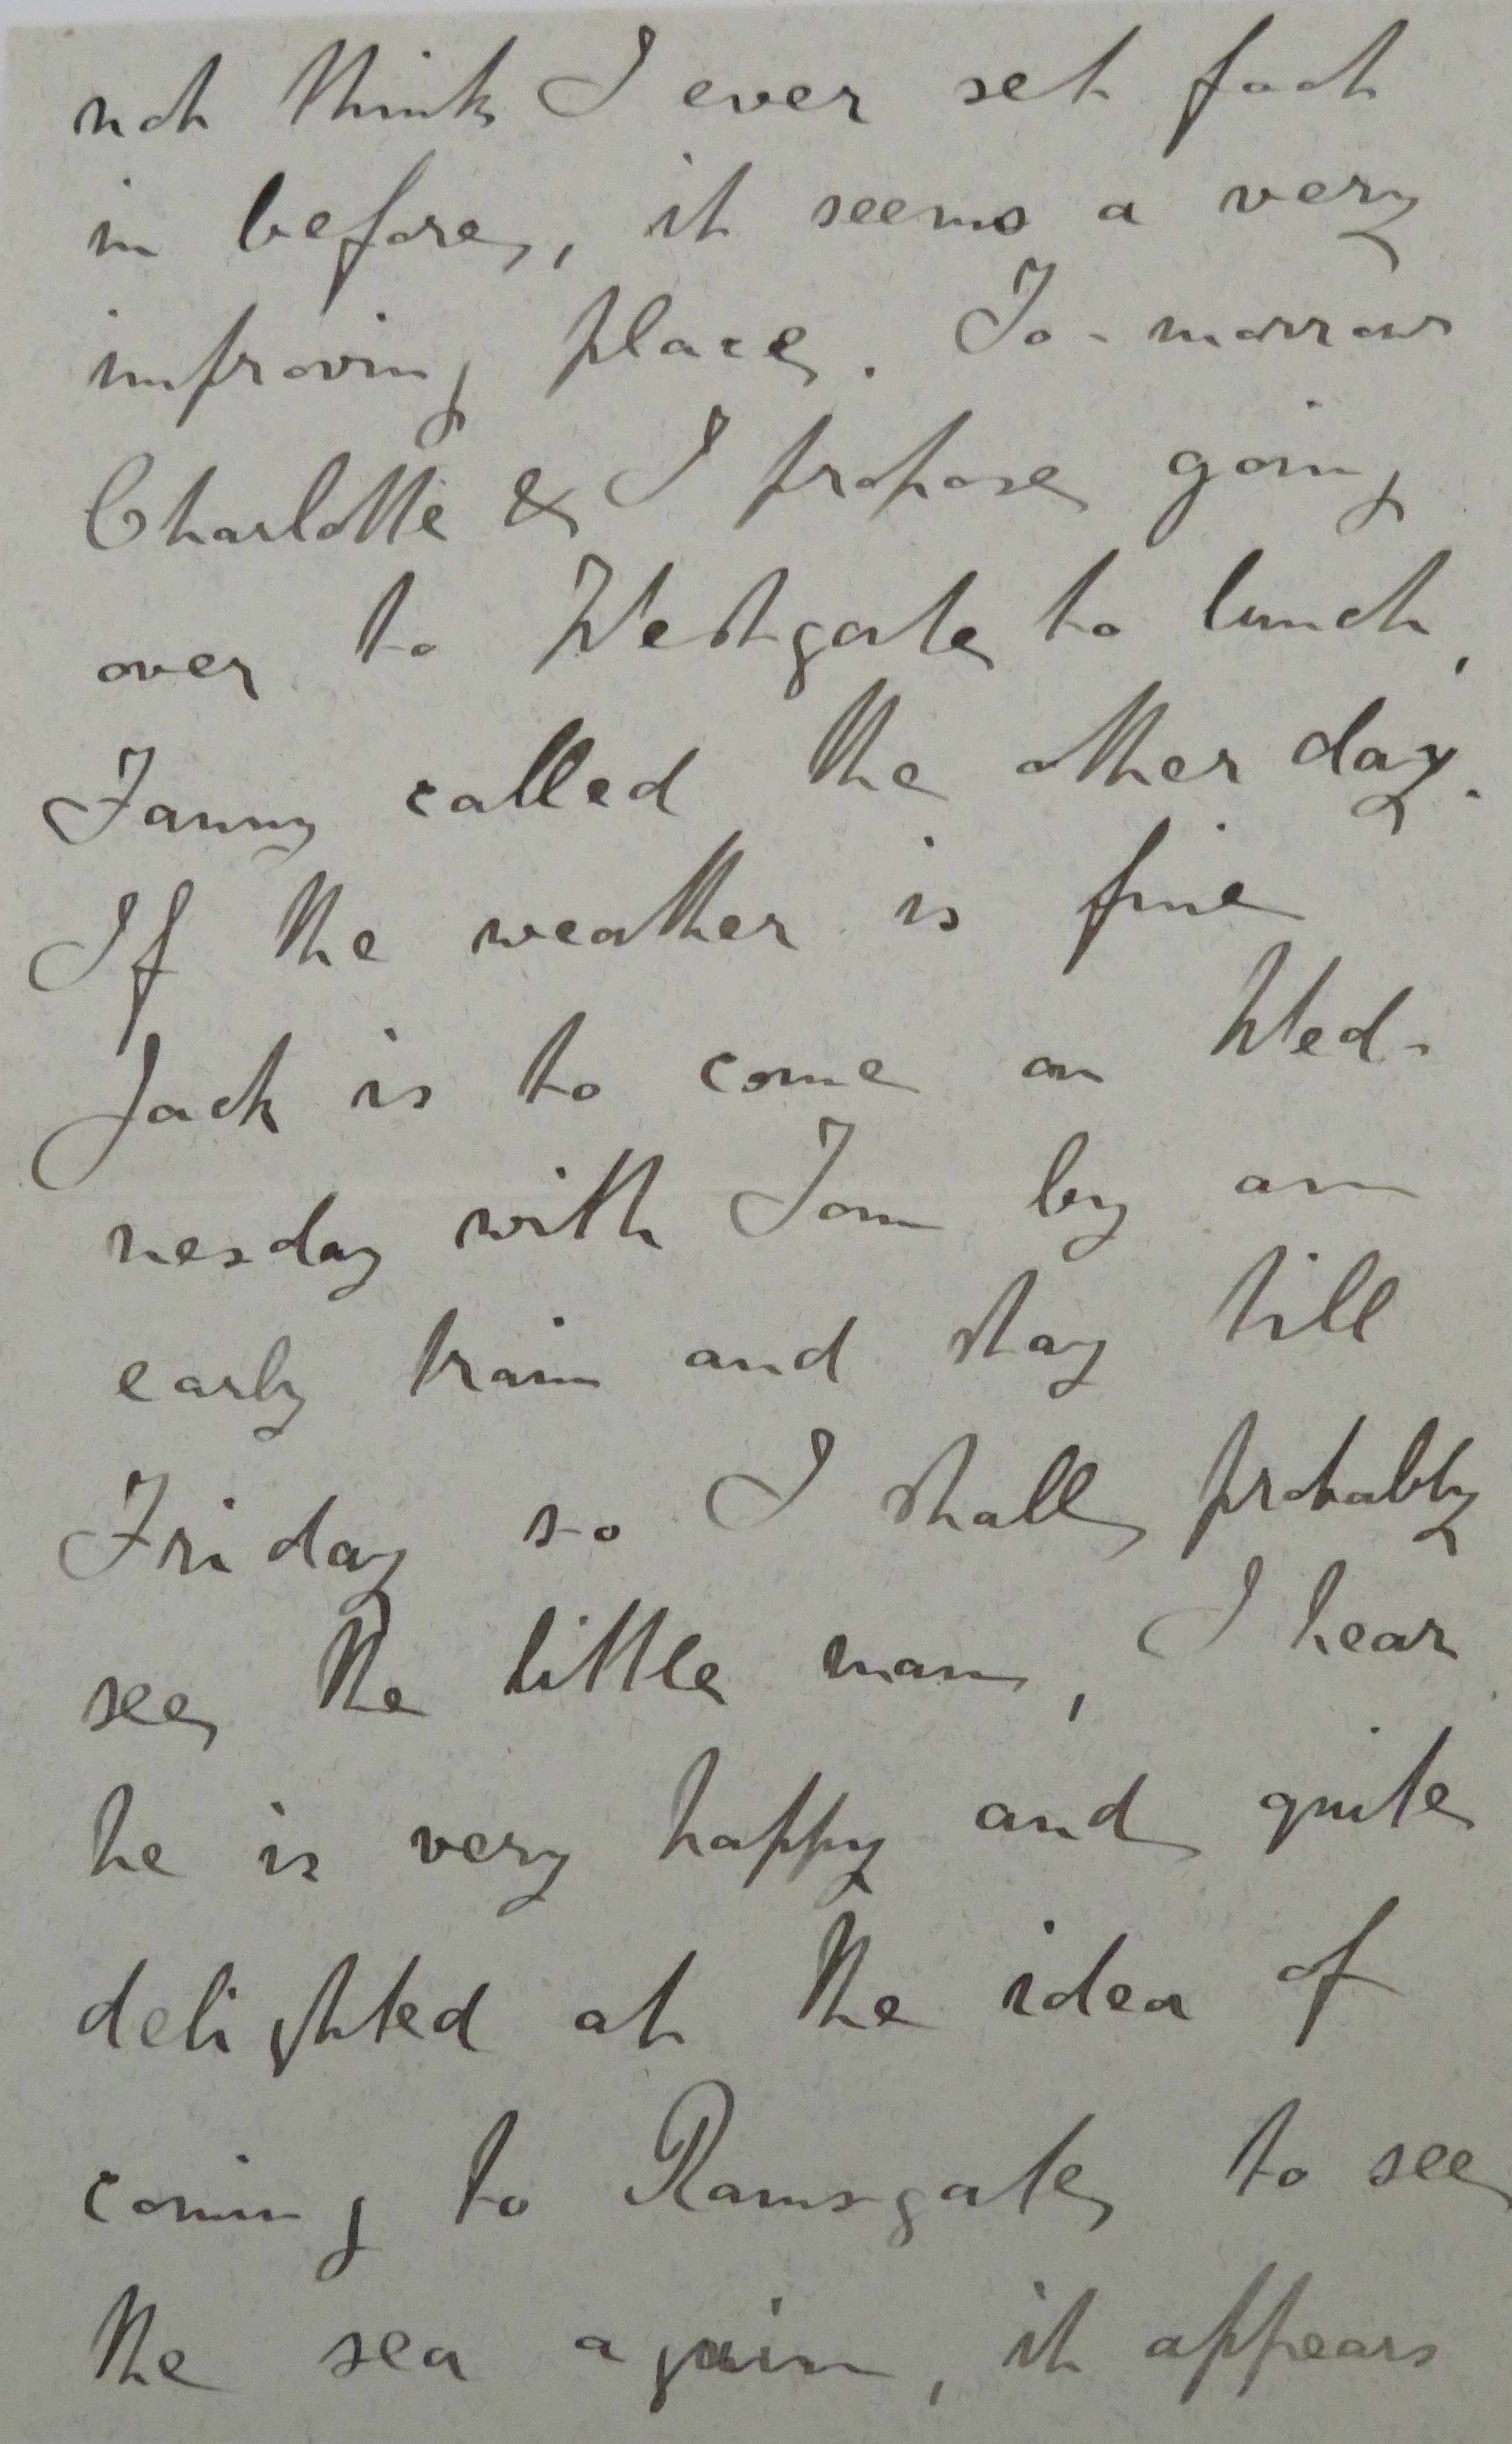 not think I ever set foot
in before, it seems a very
improving place. To-morrow
Charlotte & I propose going
over to Westgate to lunch,
Fanny called the other day.
If the weather is fine
Jack is to come on Wed-
nesday with Tom by an
early train and stay till
Friday so I shall probably
see the little man, I hear
he is very happy and quite
delighted at the idea of
coming to Ramsgate to see
the sea again, it appears